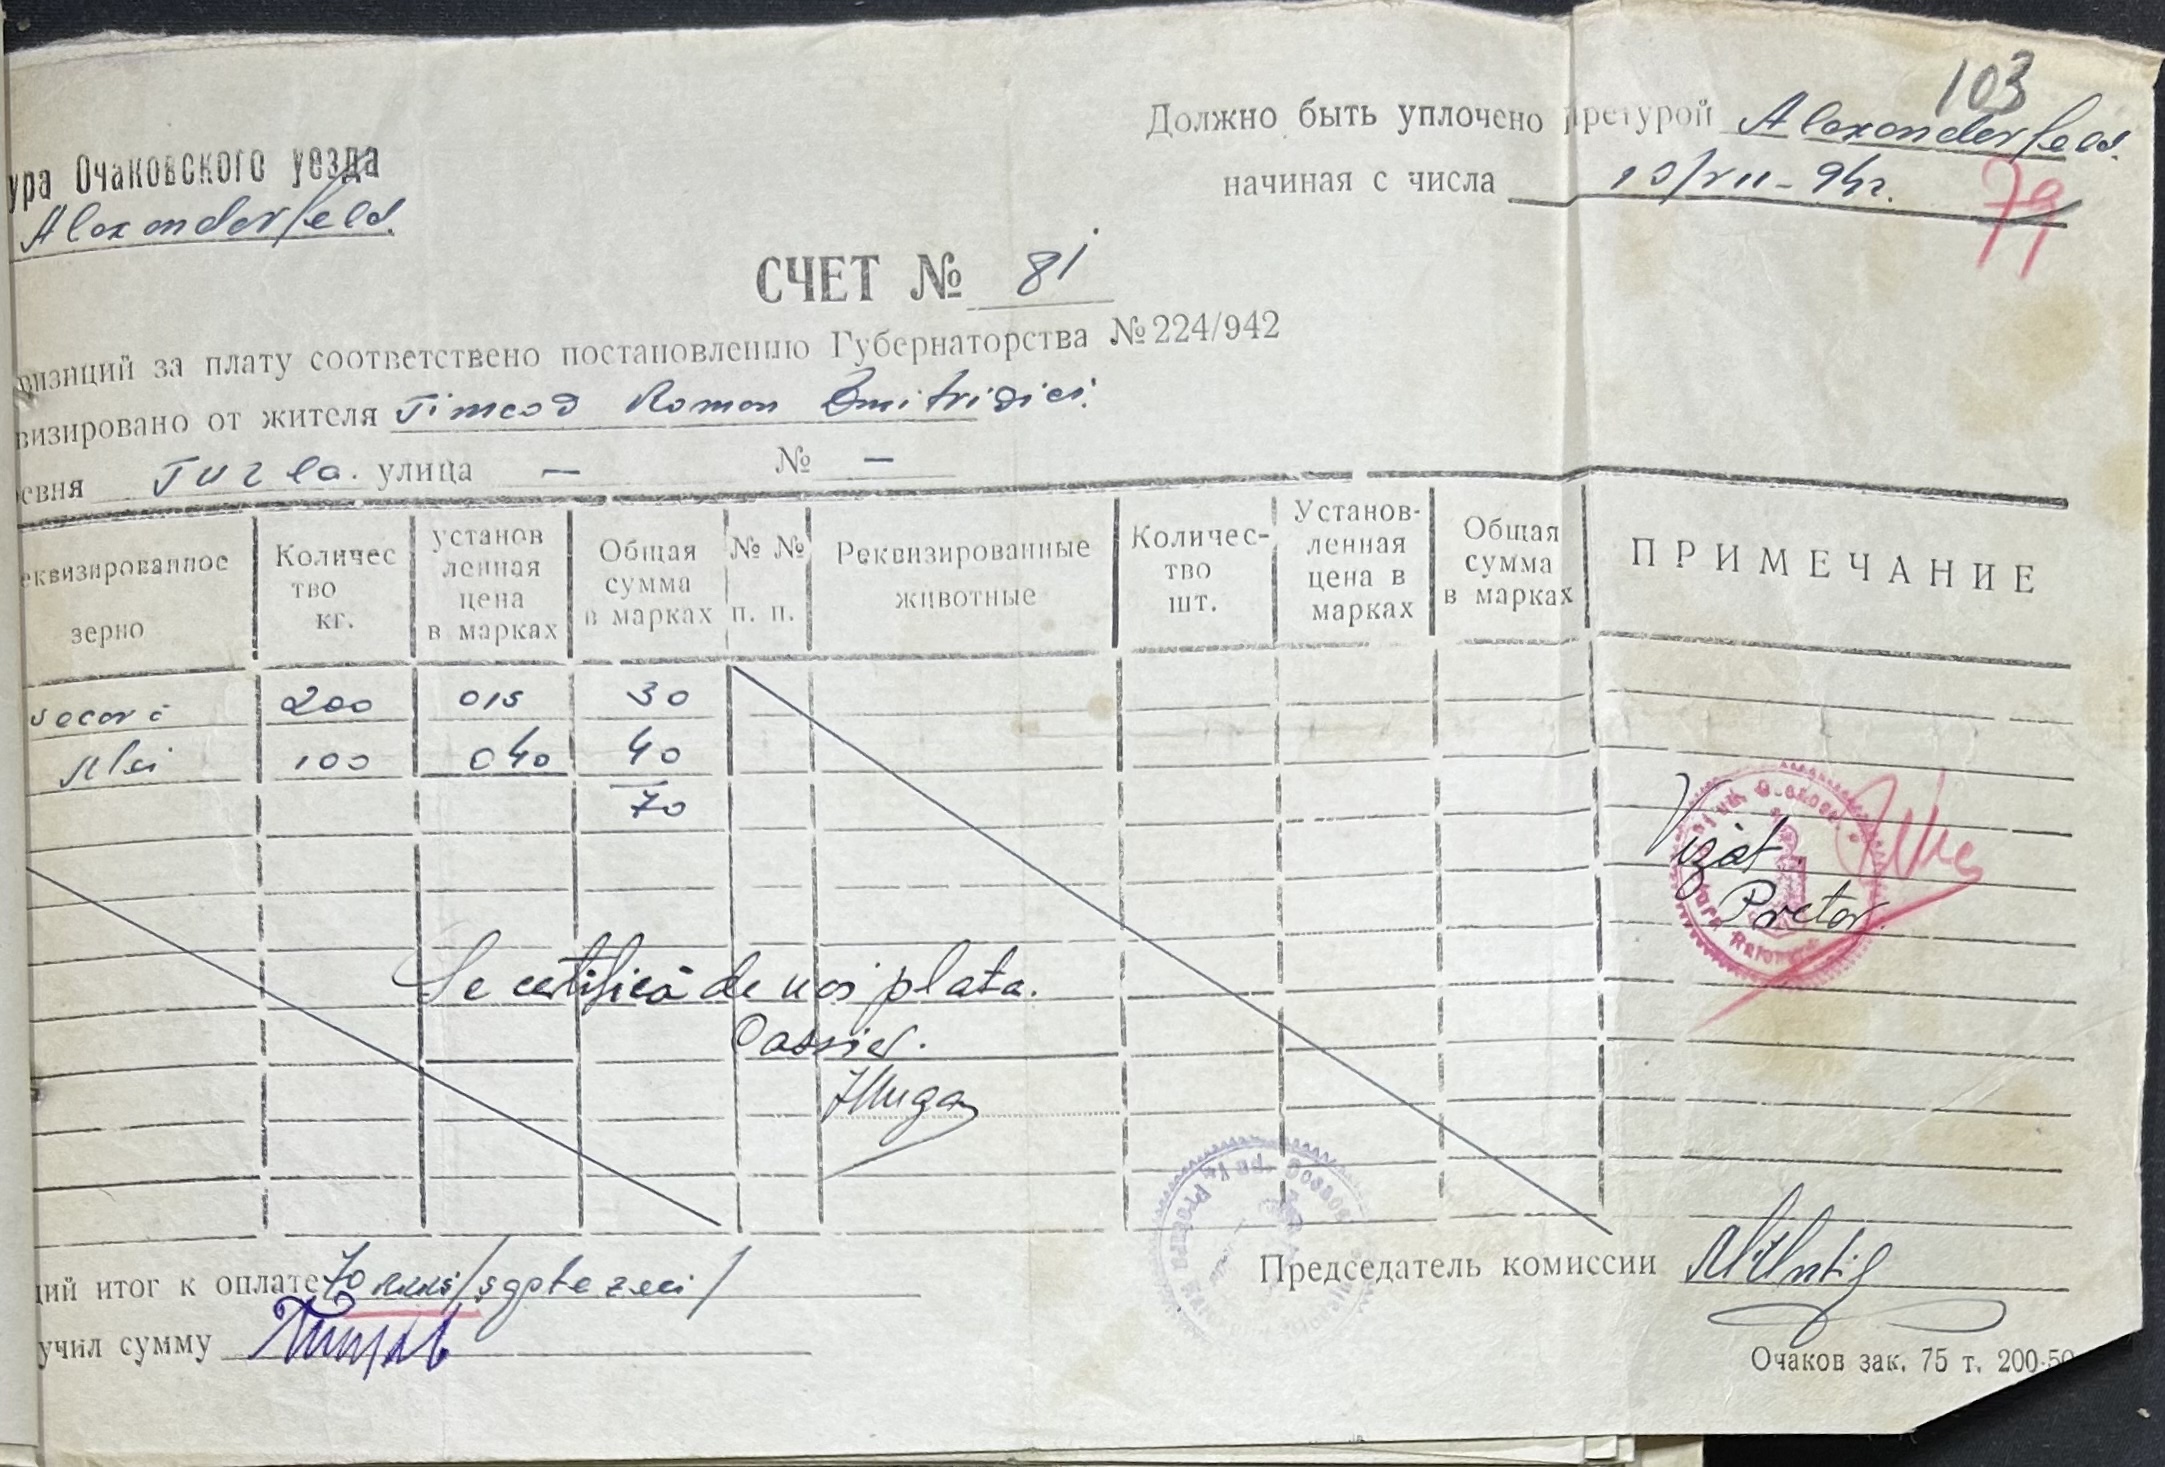 103
Должно быть уплочено претурой Alexanderfeld.
ура Очаковского уезда
начиная с числа 10/VII-942.
79
Alexanderfeld.
СЧЕТ № 81
визиций за плату соответствено постановлению Губернаторства № 224/942
визировано от жителя Roman
евня Tuzla. улица — № —
еквизированное зерно
Количес тво кг.
установ ленная цена в марках
Общая сумма в марках
№ № п. п.
Реквизированные животные
Количес- тво шт.
Установ- ленная цена в марках
Общая сумма в марках
ПРИМЕЧАНИЕ
secară 200 015 30
Mei 100 040 40
70
Vizat.
Pretor
Se certifică de noi plata.
Cassier.
щий итог к оплате 70 /șaptezeci/
Председатель комиссии
учил сумму
Очаков зак. 75 т. 200-50